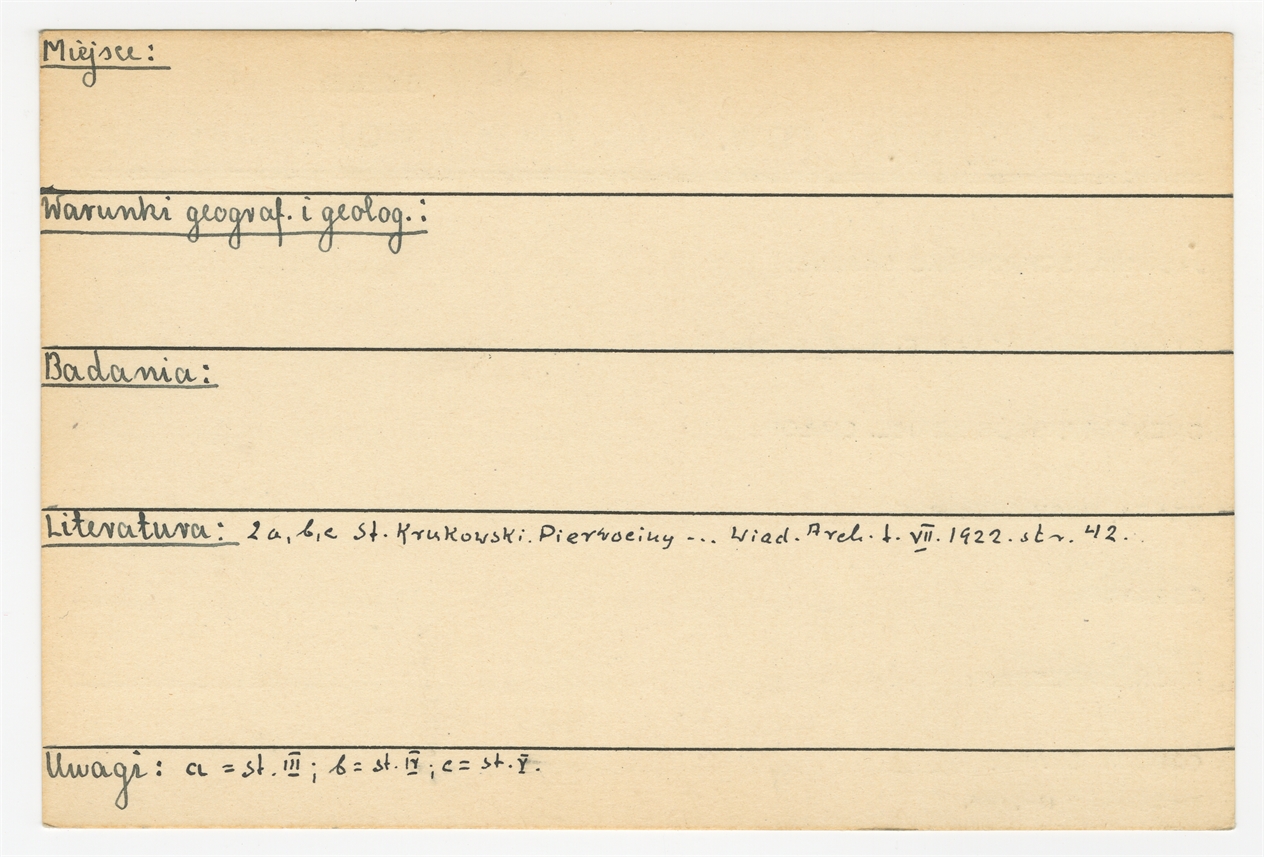 Miejsce:
Warunki geograf. i geolog.:
Badania:
Literatura: 2a, b, c St. Krukowski. Pierwociny --.. Wiad. Arch. t. VII. 1922. str. 42.
Uwagi: a = st. III; b = st. IV; c = st. V.